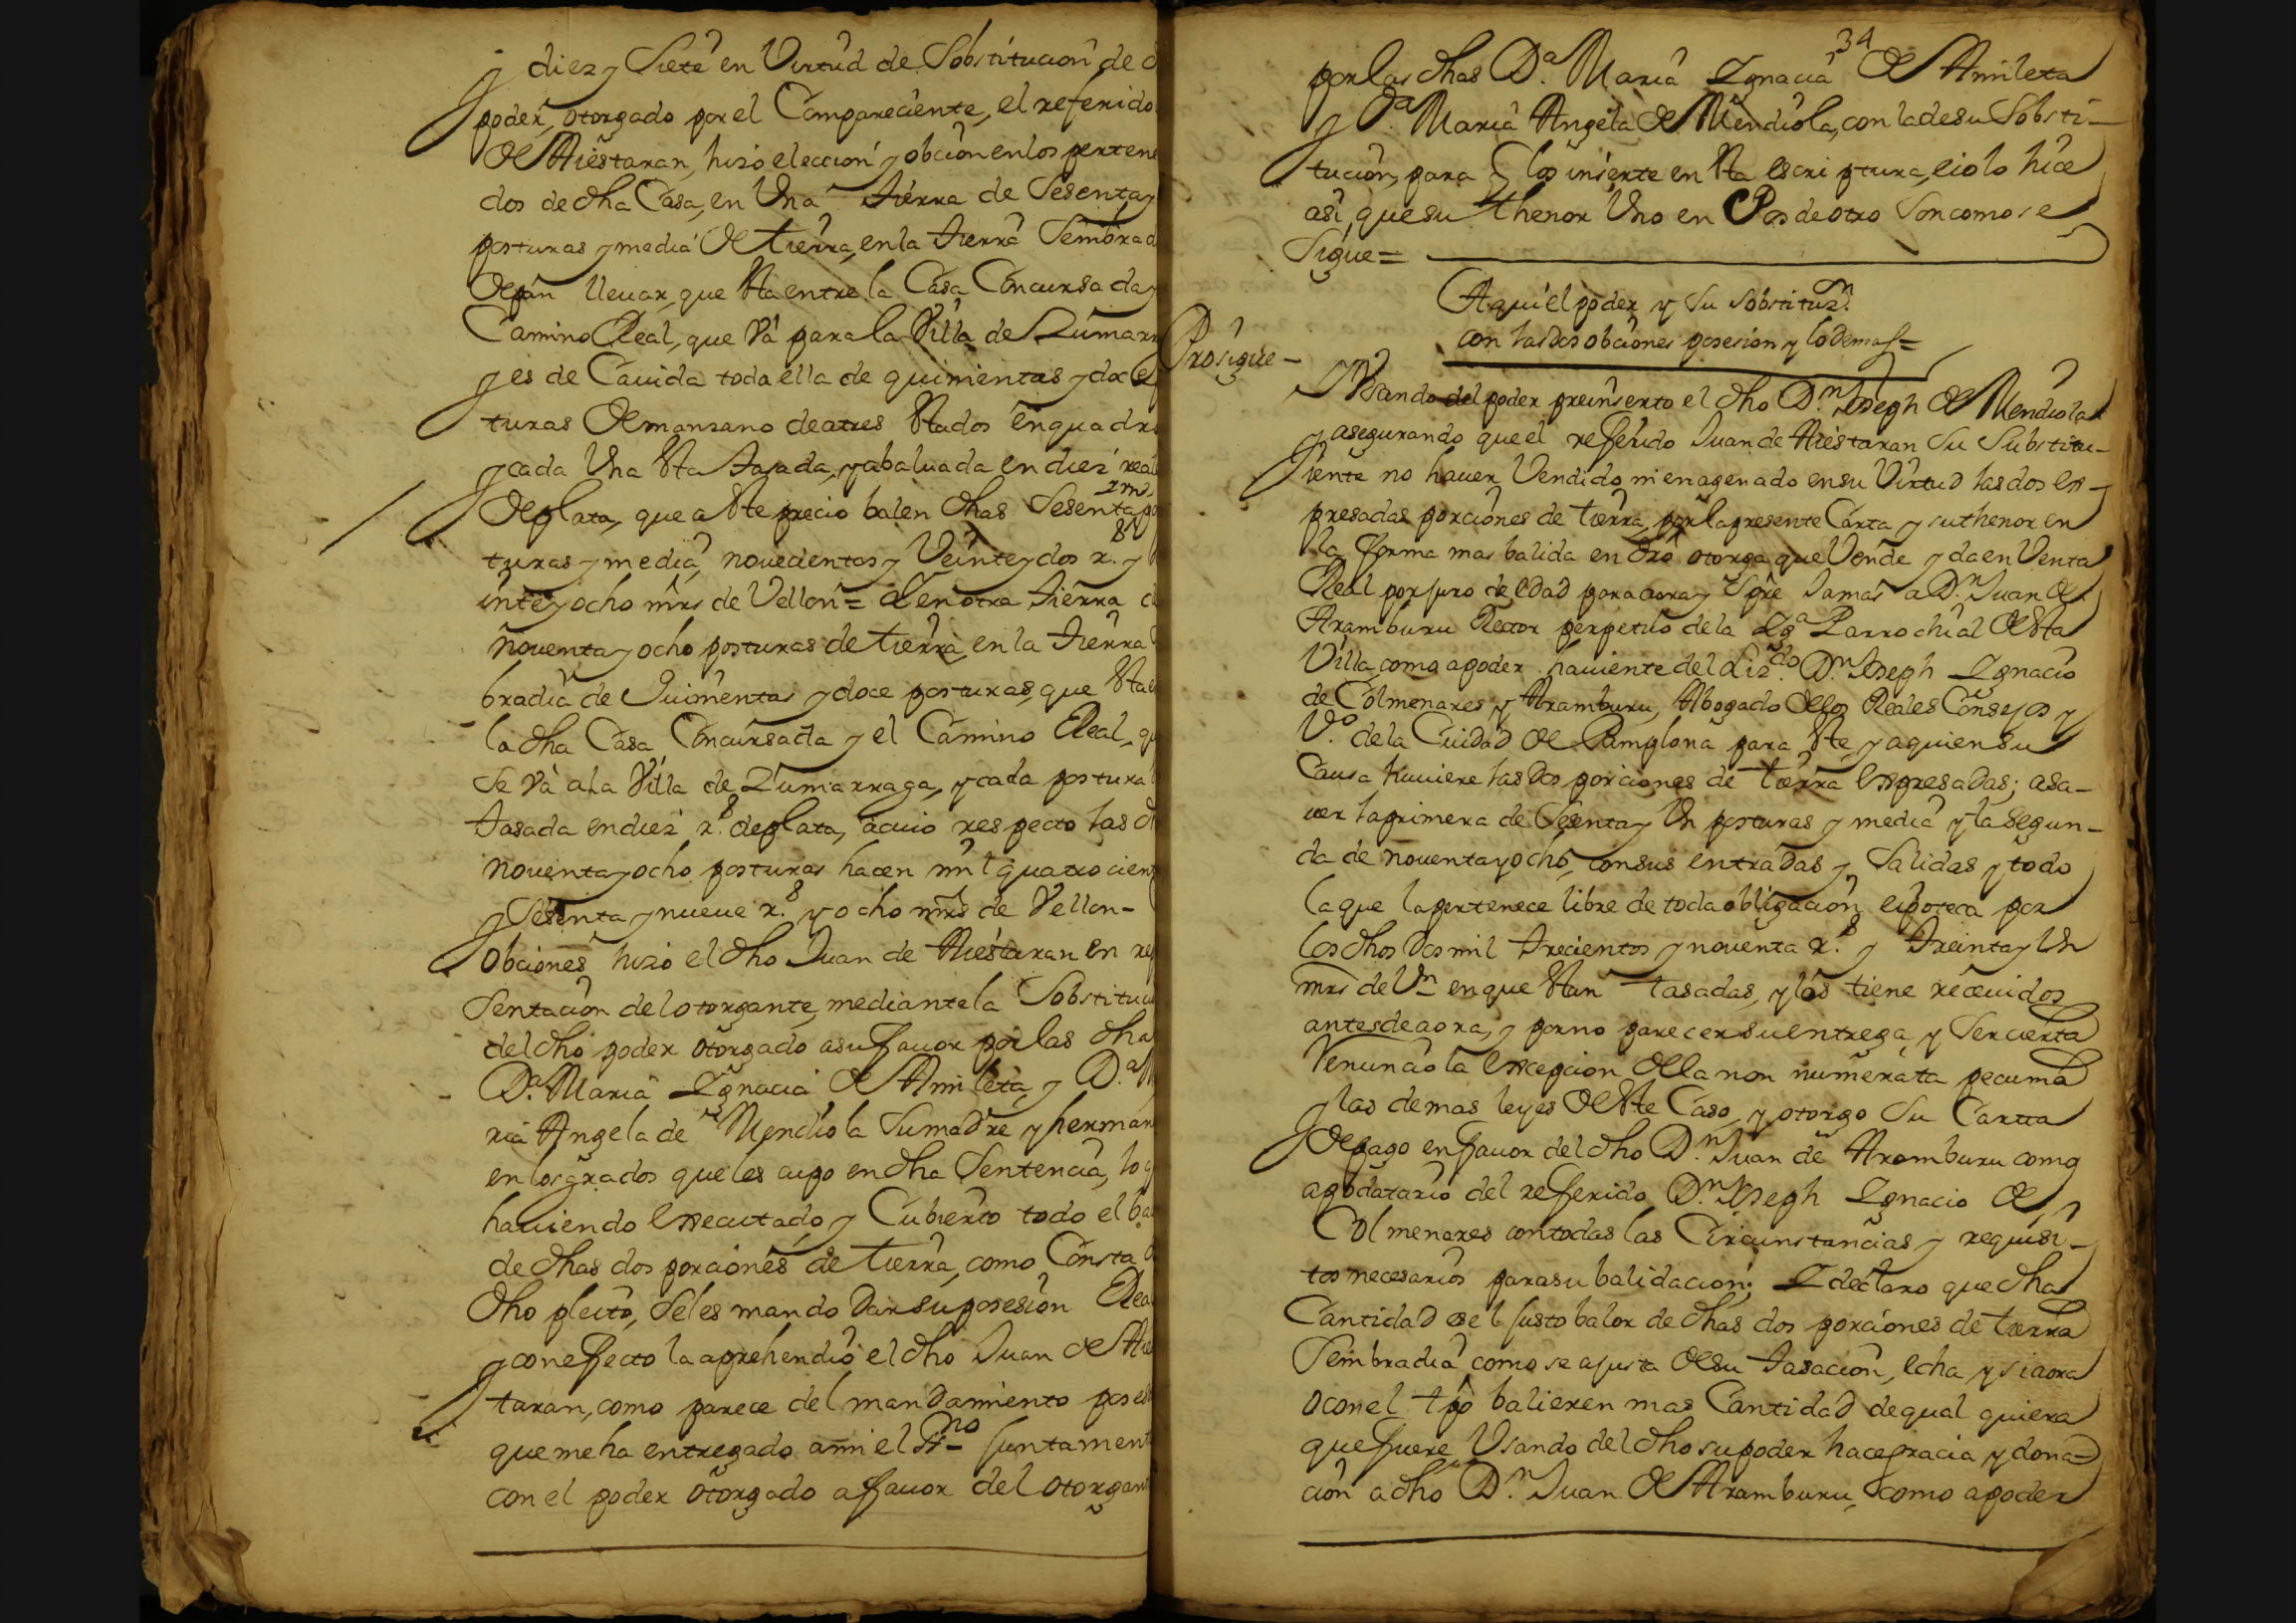 y diez y Siete en Virtud de Sobstitucion de
poder, otorgado por el Compareciente, el referido
de Aiestaran, hizo eleccion y obcion en los pertene
dos de dha Casa, en Una tierra de Sesenta y
posturas y media de tierra, en la tierra Sembrad
de pan lleuar, que sta entre la Casa Concursada y
Camino Real, que Vá para la Villa de Zumarr
y es de Cauida toda ella de quinientas y doce
turas de manzano de a tres stados en quadro
y cada Una sta tasada, y abaluada en diez real
de plata, que a ste precio balen dhas Sesenta y un po
turas y media, novecientos y Veinte y dos rs. y
inte y ocho mrs de Vellon = Y en otra tierra
noventa y ocho posturas de tierra, en la tierra
bradia de Quinientas y doce posturas, que sta
la dha Casa Concursada y el Camino Real, q
Se Vá a la Villa de Zumarraga, y cada postura
tasada en diez rs. de plata, a cuio respecto las
noventa y ocho posturas hacen mil quatrocient
y Sesenta y nueve rs. y ocho mrs de Vellon -
Obciones hizo el dho Juan de Aiestaran en
Sentacion del otorgante, mediante la Sobstituc
del dho poder otorgado a su fauor por las dha
Da. Maria Ygnacia de Amileta, y Da. M
ria Angela de Mendiola Su madre y herman
en los grados que les cupo en dha Sentencia, lo q
hauiendo executado, y Cubierto todo el ba
de dhas dos porciones de tierra, como Consta
dho pleito, Se les mando Dar su posesion Rea
y con efecto la aprehendió el dho Juan de Aie
taran, como parece del mandamiento poses
que me ha entregado a mi el SSno juntament
con el poder otorgado a fauor del otorgant
34
por las dhas Da. Maria Ygnacia de Amileta
y Da. Maria Angela de Mendiola, con la de su Sobsti-
tucion, para q los inserte en sta escriptura, e io lo hice
asi, que su thenor Uno en Pos de otro Son como se
Sigue =
Aqui el poder y su sobstituzn.
con las dos obciones posesion y lo Demas =
Prosigue -
Usando del poder preinserto el dho Dn. Joseph de Mendiola
y asegurando que el referido Juan de Aiestaran Su Substitu-
iente no hauer Vendido, ni enagenado en su Virtud las dos es-
presadas porciones de tierra, por la presente Carta y su thenor en
la forma mas balida en dro otorga que Vende y da en Venta
Real por juro de eDad para aora y Spre Jamas a Dn. Juan de
Aramburu Rector perpetuo de la Yga. Parrochial de sta
Villa, como apoder hauiente del Lizdo. Dn. Joseph Ygnacio
de Colmenares y Aramburu, Abogado de los Reales Consejos y
Vo. de la Cuidad de Pamplona para ste, y a quien su
Causa huuiere las Dos porciones de tierra expresaDas; a sa-
uer la primera de Sesenta y Un posturas y media y la Segun-
da de noventa y ocho, con sus entraDas y Salidas y todo
la que la pertenece libre de toda obligacion e ipoteca por
los dhos Dos mil trecientos y noventa rs. y treinta y Un
mrs de Vn en que stan tasadas, y los tiene receuidos
antes de aora, y por no parecer su entrega, y Ser cierta
Renuncio la excepcion de la non numerata pecunia
y las demas leyes de ste Caso, y otorgo Su Cartta
de pago en fauor del dho Dn. Juan de Aramburu como
apodatario del referido Dn. Joseph Ygnacio de
Colmenares con todas las Circunstancias y requisi-
tos necesarios para su balidacion; Y declaro que dha
Cantidad es el justo balor de dhas dos porciones de tierra
Sembradia como se ajusta de su tasacion, echa y si aora
o con el tpo balieren mas Cantidad de qual quiera
que fuere Usando del dho su poder hace gracia y dona-
cion a dho Dn. Juan de Aramburu, como apoder